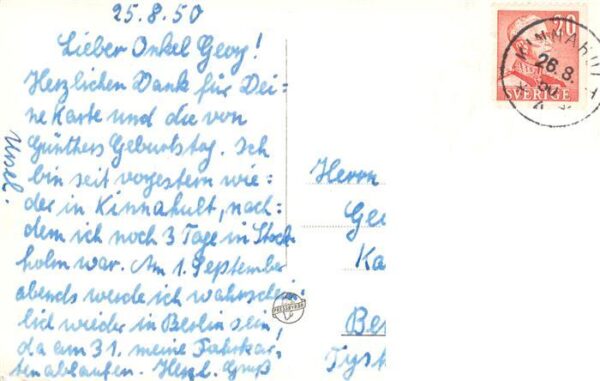 25.8.50
Lieber Onkel Georg!
Herzlichen Dank für Dei=
ne Karte und die von
Günthers Geburtstag. Ich
bin seit vorgestern wie=
der in Kinnahult, nach=
dem ich noch 3 Tage in Stock
holm war. Am 1. September
abends werde ich wahrschein
lich wieder in Berlin sein,
da am 31. meine Fahrkar=
ten ablaufen. Herzl. Gruß
Ursel.
20
SVERIGE
KINNAHULT
26.8.
50
Herrn
Ge
Ka
Be
Tysk